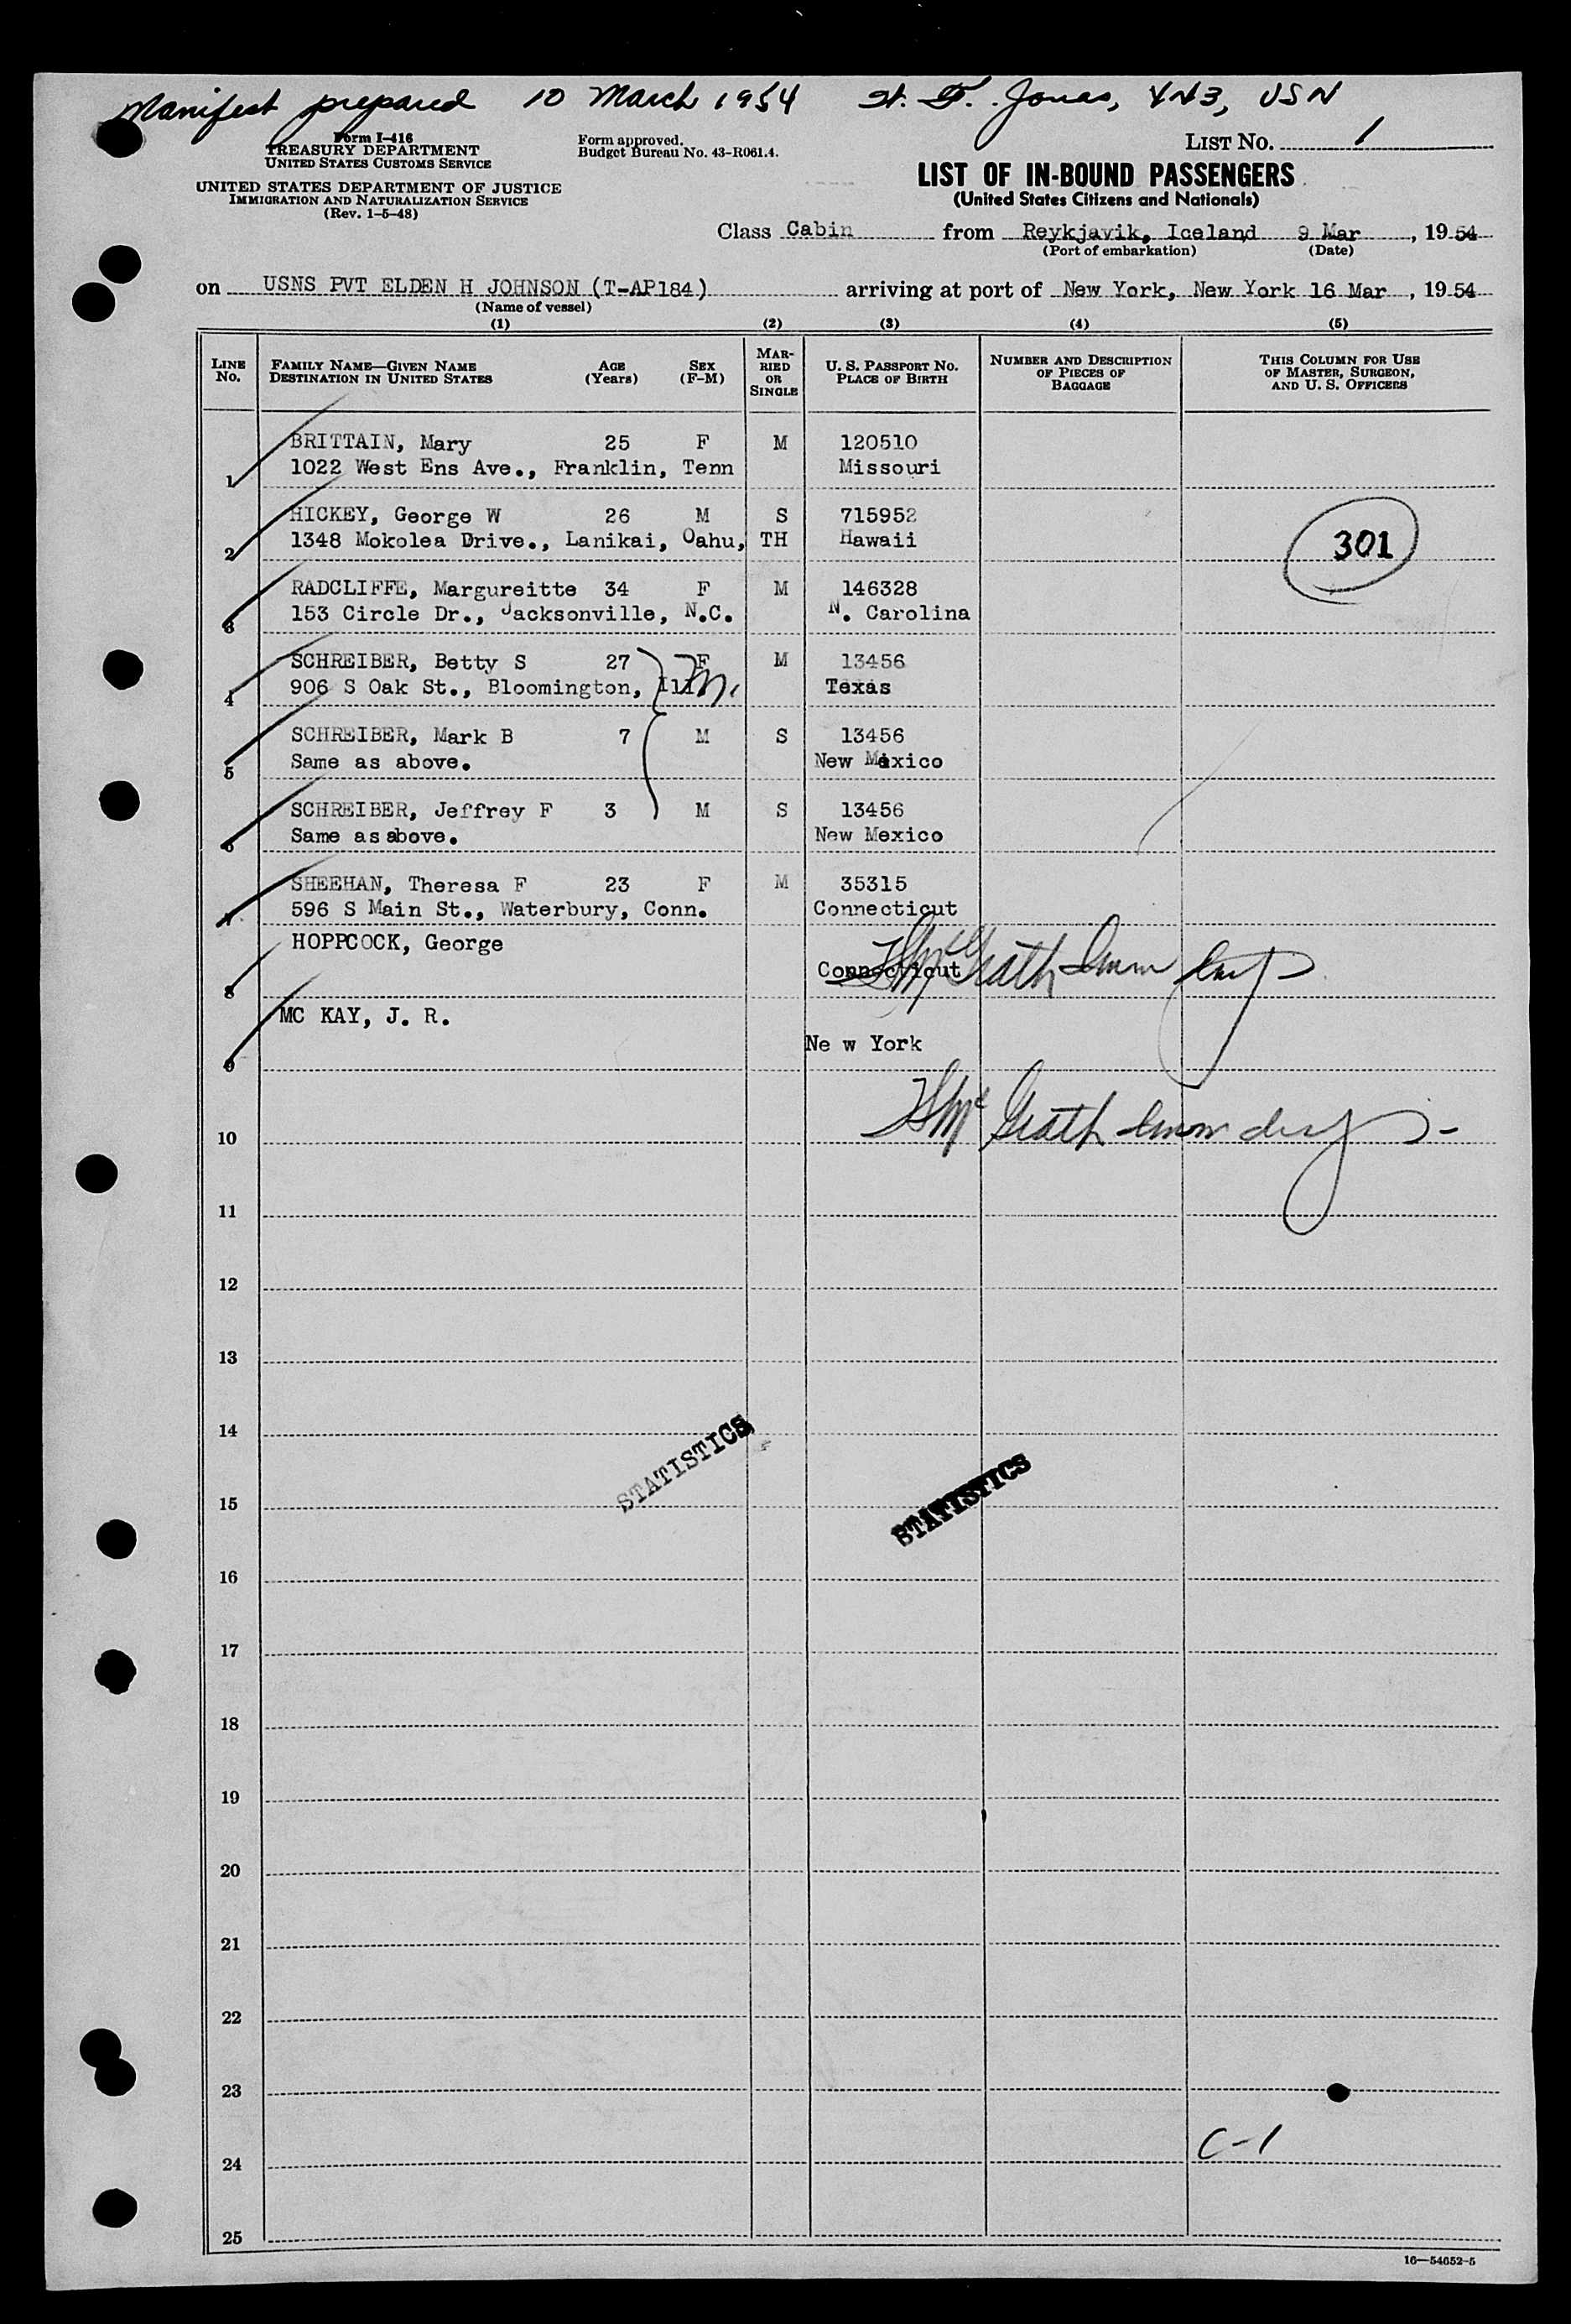 Manifest prepared 10 March 1954 H. F. Jonas, YN3, USN
Form I-416
TREASURY DEPARTMENT
UNITED STATES CUSTOMS SERVICE
Form approved.
Budget Bureau No. 43-R061.4.
LIST NO. 1
UNITED STATES DEPARTMENT OF JUSTICE
IMMIGRATION AND NATURALIZATION SERVICE
(Rev. 1-5-48)
LIST OF IN-BOUND PASSENGERS
(United States Citizens and Nationals)
Class Cabin from Reykjavik, Iceland 9 Mar, 1954
(Port of embarkation) (Date)
on USNS PVT ELDEN H JOHNSON (T-AP184) arriving at port of New York, New York 16 Mar, 1954
(Name of vessel)
(1) (2) (3) (4) (5)
LINE NO. FAMILY NAME—GIVEN NAME DESTINATION IN UNITED STATES AGE (Years) SEX (F-M) MARRIED OR SINGLE U. S. PASSPORT NO. PLACE OF BIRTH NUMBER AND DESCRIPTION OF PIECES OF BAGGAGE THIS COLUMN FOR USE OF MASTER, SURGEON, AND U. S. OFFICERS
BRITTAIN, Mary 25 F M 120510
1 1022 West Ens Ave., Franklin, Tenn Missouri
HICKEY, George W 26 M S 715952
2 1348 Mokolea Drive., Lanikai, Oahu, TH Hawaii 301
RADCLIFFE, Margureitte 34 F M 146328
3 153 Circle Dr., Jacksonville, N.C. N. Carolina
SCHREIBER, Betty S 27 F M 13456
4 906 S Oak St., Bloomington, Ill Texas
SCHREIBER, Mark B 7 M S 13456
5 Same as above. New Mexico
SCHREIBER, Jeffrey F 3 M S 13456
6 Same as above. New Mexico
SHEEHAN, Theresa F 23 F M 35315
7 596 S Main St., Waterbury, Conn. Connecticut
HOPPCOCK, George
8 Connecticut
MC KAY, J. R.
9 Ne w York
10
11
12
13
14
STATISTICS
STATISTICS
15
16
17
18
19
20
21
22
23
C-1
24
25
16—54652-5